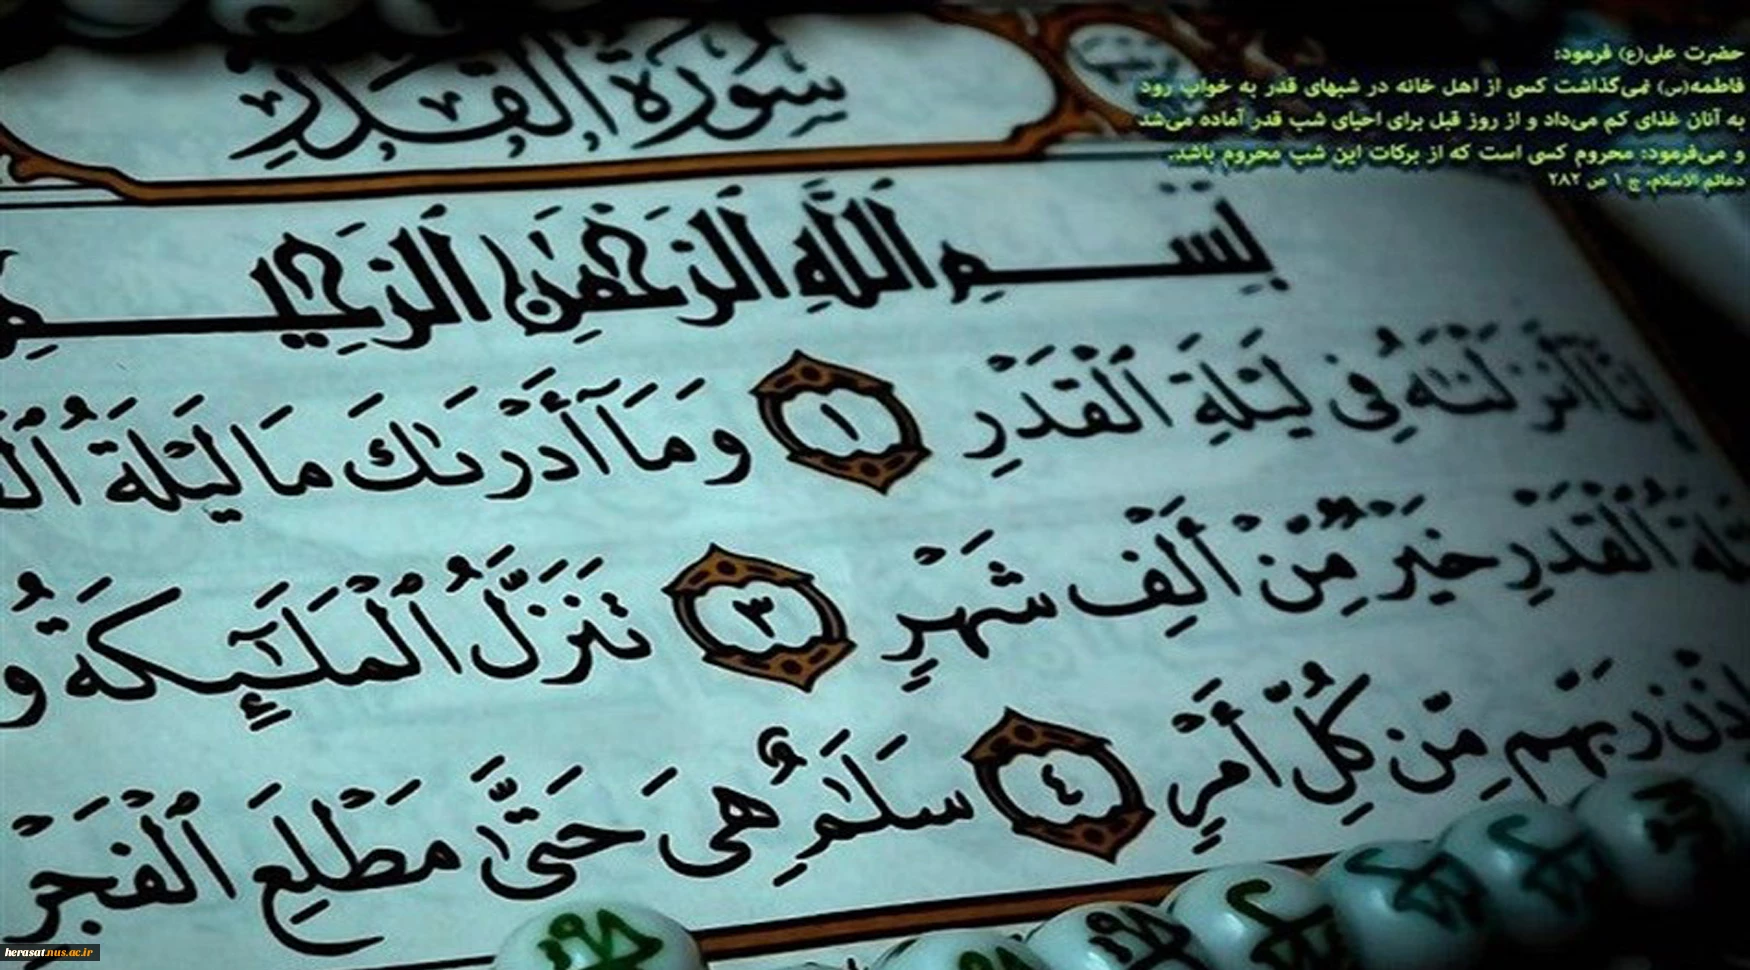 سُورَةُ القَدْرِ
حضرت علی(ع) فرمود:
فاطمه(س) نمی‌گذاشت کسی از اهل خانه در شبهای قدر به خواب رود
به آنان غذای کم می‌داد و از روز قبل برای احیای شب قدر آماده می‌شد
و می‌فرمود: محروم کسی است که از برکات این شب محروم باشد.
دعائم الاسلام، ج ۱ ص ۲۸۲
بِسْمِ ٱللَّهِ ٱلرَّحْمَٰنِ ٱلرَّحِيمِ
إِنَّآ أَنزَلْنَٰهُ فِى لَيْلَةِ ٱلْقَدْرِ ١ وَمَآ أَدْرَىٰكَ مَا لَيْلَةُ
ٱلْقَدْرِ خَيْرٌ مِّنْ أَلْفِ شَهْرٍ ٣ تَنَزَّلُ ٱلْمَلَٰٓئِكَةُ وَ
رَبِّهِم مِّن كُلِّ أَمْرٍ ٤ سَلَٰمٌ هِىَ حَتَّىٰ مَطْلَعِ ٱلْفَجْرِ
herasat.nus.ac.ir